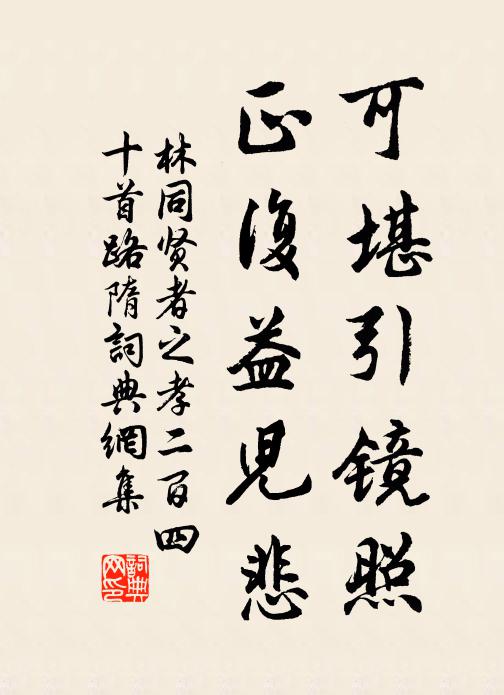 可堪引镜照
正復益児悲
林同贤者之孝二百四
十首路隋詞典網集
詞典網印